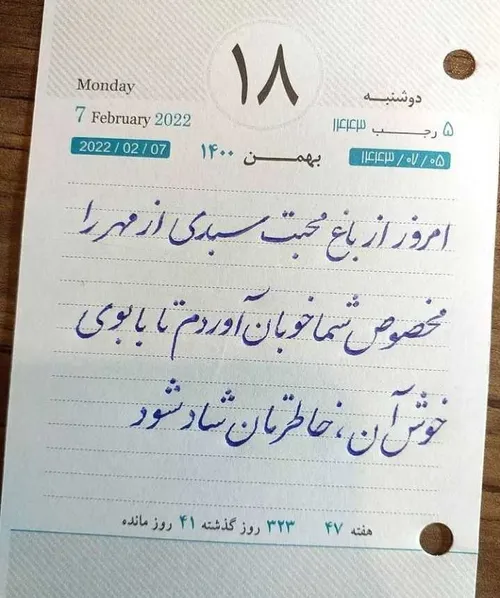 ۱۸
Monday
دوشنبه
7 February 2022
۵ رجب ۱۴۴۳
2022 / 02 / 07
بهمن ۱۴۰۰
۱۴۴۳ / ۰۷ / ۰۵
امروز از باغ محبت سبدی از مهر را
مخصوص شما خوبان آوردم تا با بوی
خوش آن، خاطرتان شاد شود
هفته ۴۷ ۳۲۳ روز گذشته ۴۱ روز مانده